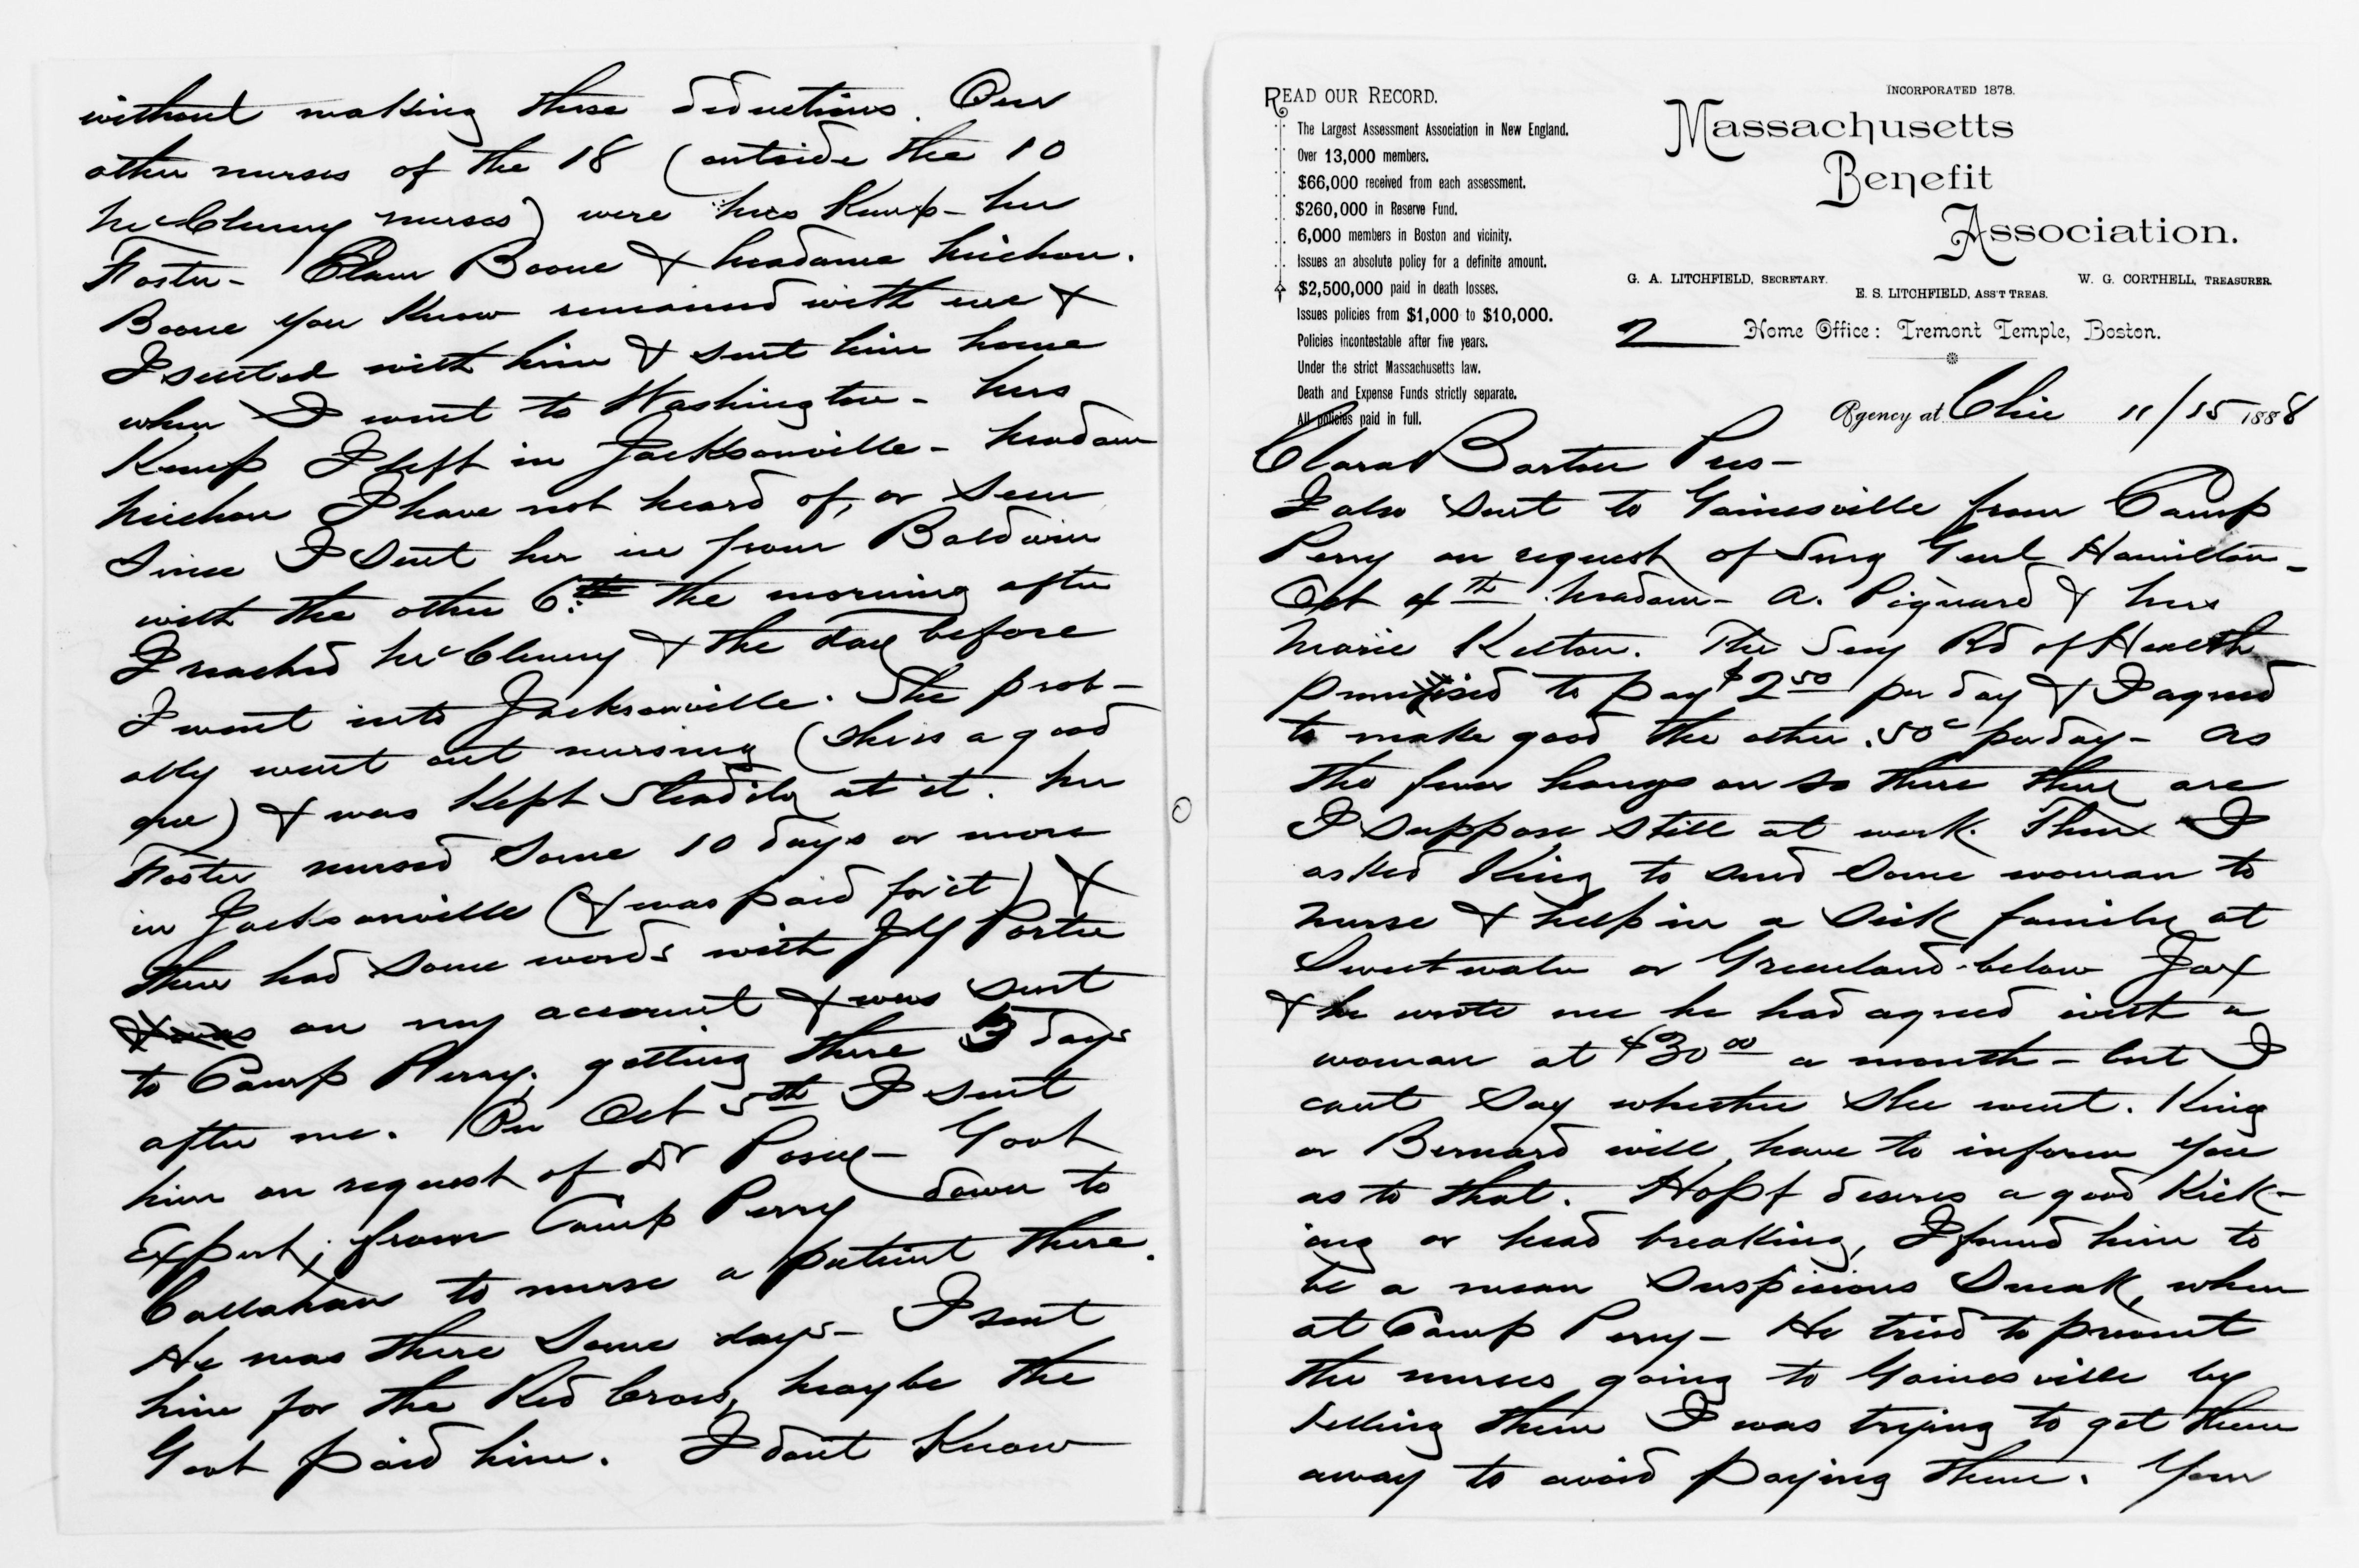 without making these deductions. Our
other nurses of the 18 (outside the 10
McClenny nurses) were Miss Kemp - Mr
Foster - Clam Boone & Madame Michon.
Boone you know remained with me &
I settled with him & sent him home
when I went to Washington - Miss
Kemp I left in Jacksonville - Madam
Michon I have not heard of, or seen
since I sent her in from Baldwin
with the other 6. the morning after
I reached McClenny & the day before
I went into Jacksonville. She prob-
ably went out nursing (she is a good
one) & was kept steadily at it. Mr
Foster nursed some 10 days or more
in Jacksonville (& was paid for it) &
then had some words with Porter
& was on my account & was sent
to Camp Perry, getting there 3 days
after me. On Oct 5th I sent
him on request of Dr Posey - Govt
Expert, from Camp Perry down to
Callahan to nurse a patient there.
He was there some days - I sent
him for the Red Cross, maybe the
Govt paid him. I dont know
READ OUR RECORD.
The Largest Assessment Association in New England.
Over 13,000 members.
$66,000 received from each assessment.
$260,000 in Reserve Fund.
6,000 members in Boston and vicinity.
Issues an absolute policy for a definite amount.
$2,500,000 paid in death losses.
Issues policies from $1,000 to $10,000.
Policies incontestable after five years.
Under the strict Massachusetts law.
Death and Expense Funds strictly separate.
All policies paid in full.
INCORPORATED 1878.
Massachusetts
Benefit
Association.
G. A. LITCHFIELD, SECRETARY.
W. G. CORTHELL, TREASURER.
E. S. LITCHFIELD, ASS'T TREAS.
2 Home Office: Tremont Temple, Boston.
Agency at Chic 11/15 1888
Clara Barton Pres -
I also sent to Gainesville from Camp
Perry on request of Surg Genl Hamilton -
Oct 4th Madam - A. Piquard & Miss
Marie Kelton. The Bd of Health
promised to pay $2 50 per day & I agreed
to make good the other .50c per day - As
the fever hangs on so there they are
I suppose still at work. Then I
asked King to send some woman to
nurse & help in a sick family at
Sweetwater or Greenland - below Jax
& he wrote me he had agreed with a
woman at $30 00 a month - but I
cant say whether she went. King
or Bernard will have to inform you
as to that. Hopf deserves a good kick-
ing or head breaking, I found him to
be a mean suspicious sneak, when
at Camp Perry - He tried to prevent
the nurses going to Gainesville by
telling them I was trying to get them
away to avoid paying them. Your